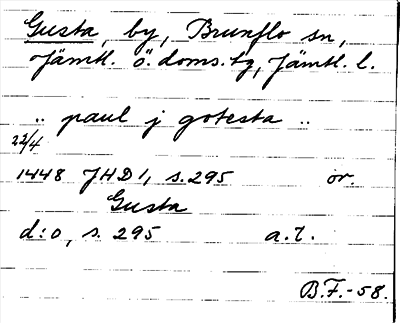 Gusta, by, Brunflo sn,
Jämtl. ö. doms. tg, Jämtl. l.
.. paul j gotesta ..
22/4
1448 JHD 1, s. 295 or.
Gusta
d:o, s. 295 a.l.
B.F.-58.